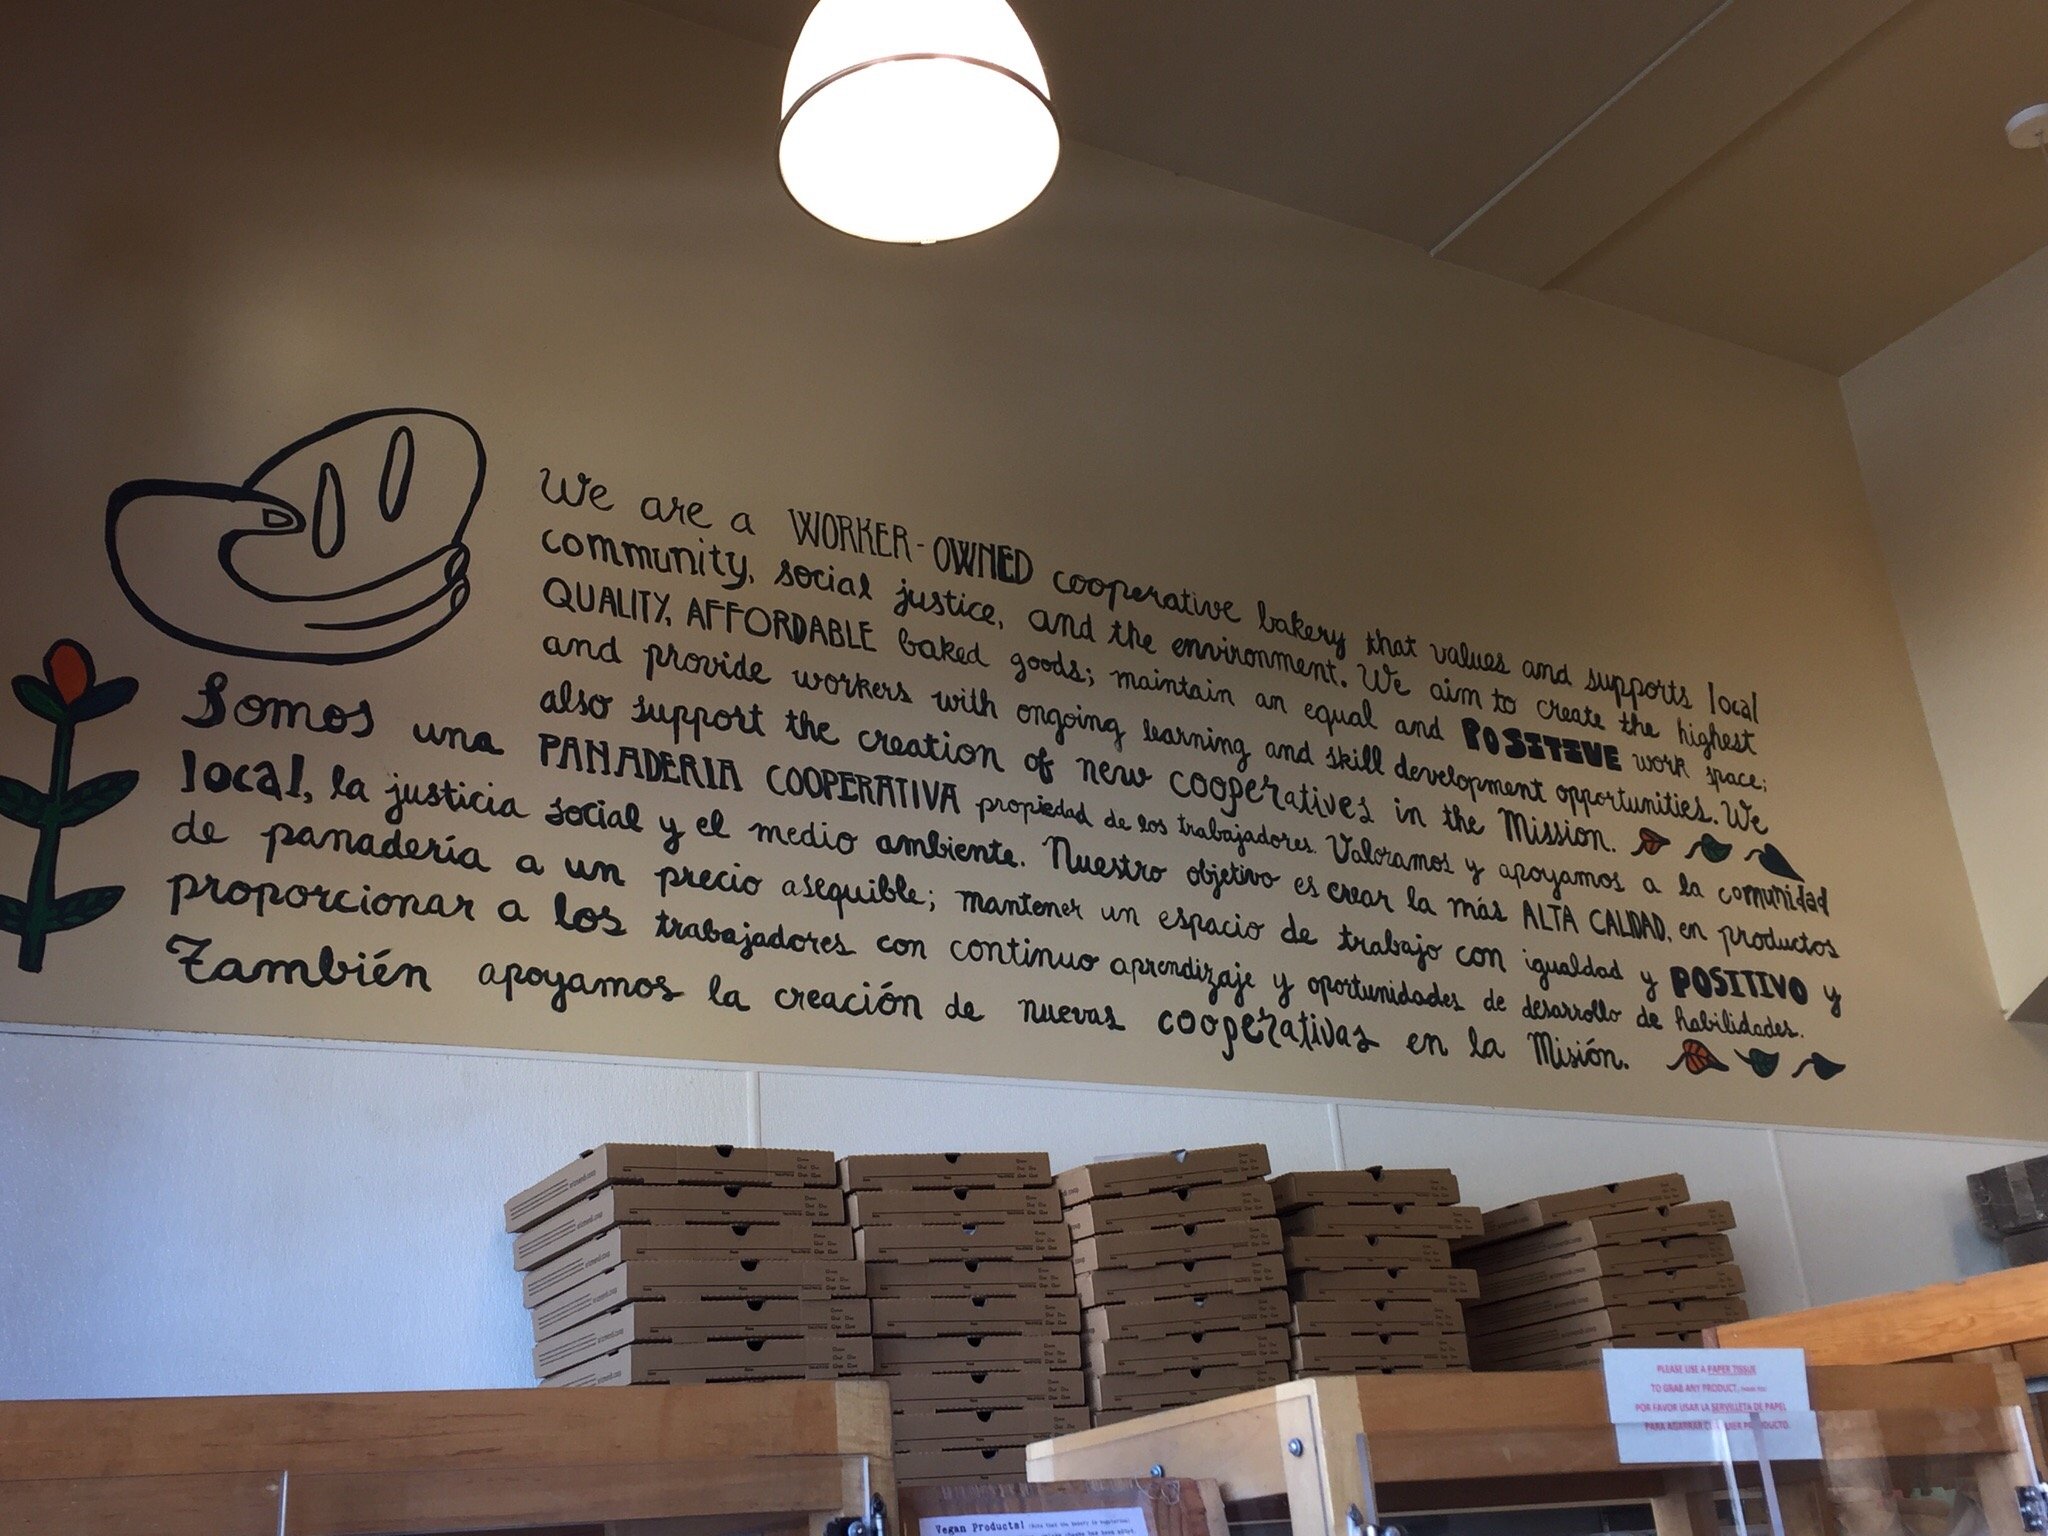 We are a WORKER-OWNED cooperative bakery that values and supports local
community, social justice, and the environment. We aim to create the highest
QUALITY, AFFORDABLE baked goods; maintain an equal and POSITIVE work space;
and provide workers with ongoing learning and skill development opportunities. We
also support the creation of new cooperatives in the Mission.
Somos una PANADERIA COOPERATIVA propiedad de los trabajadores. Valoramos y apoyamos a la comunidad
local, la justicia social y el medio ambiente. Nuestro objetivo es crear la más ALTA CALIDAD, en productos
de panadería a un precio asequible; mantener un espacio de trabajo con igualdad y POSITIVO y
proporcionar a los trabajadores con continuo aprendizaje y oportunidades de desarrollo de habilidades.
También apoyamos la creación de nuevas cooperativas en la Misión.
PLEASE USE A PAPER TISSUE
TO GRAB ANY PRODUCT,
POR FAVOR USAR LA SERVILLETA DE PAPEL
PARA AGARRAR PRODUCTO
Vegan Products!